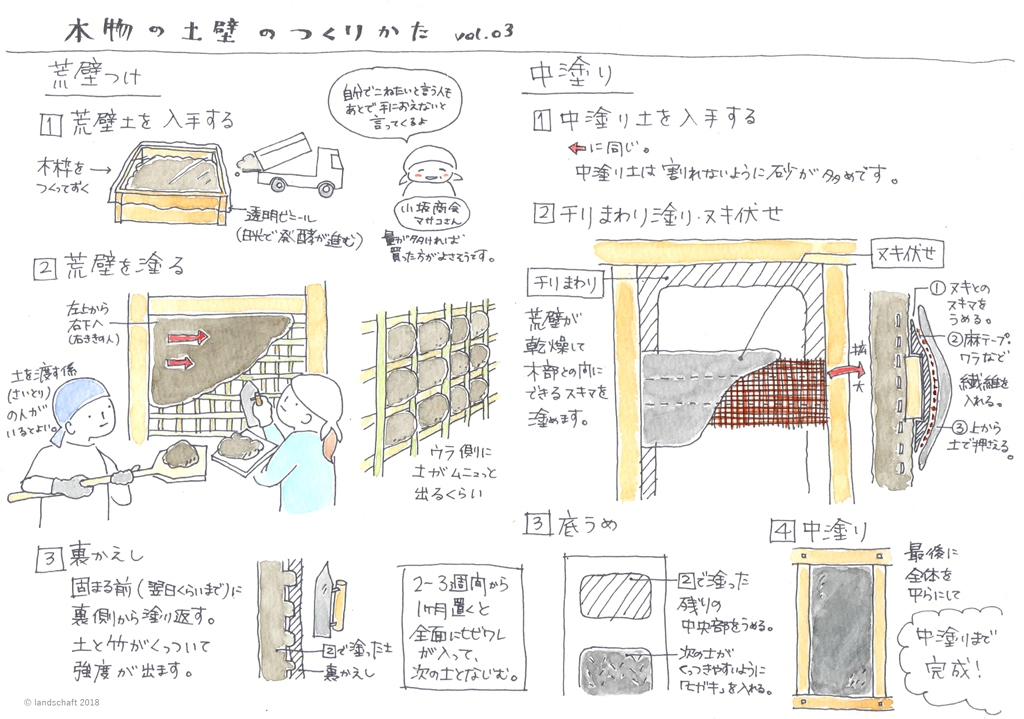 本物の土壁のつくりかた vol.03
荒壁つけ
1 荒壁土を入手する
木枠を
つくっておく
透明ビニール
(日光で発酵が進む)
自分でこねたいと言う人も
あとで手におえないと
言ってくるよ
小坂商会
マサコさん
量が多ければ
買った方がよさそうです。
2 荒壁を塗る
左上から
右下へ
(右ききの人)
土を渡す係
(さいとり)
の人が
いるとよい。
ウラ側に
土がムニュっと
出るくらい
3 裏かえし
固まる前(翌日くらいまで)に
裏側から塗り返す。
土と竹がくっついて
強度が出ます。
2で塗った土
裏かえし
2~3週間から
1ヶ月置くと
全面にヒビワレ
が入って、
次の土となじむ。
中塗り
1 中塗り土を入手する
←に同じ。
中塗り土は割れないように砂が多めです。
2 チリまわり塗り・ヌキ伏せ
チリまわり
ヌキ伏せ
荒壁が
乾燥して
木部との間に
できるスキマを
塗めます。
拡大
①ヌキとの
スキマを
うめる。
②麻テープ。
ワラなど
繊維を
入れる。
③上から
土で押さえる。
3 底うめ
2で塗った
残りの
中央部をうめる。
次の土が
くっつきやすいように
「ヒガキ」を入れる。
4 中塗り
最後に
全体を
平らにして
中塗りまで
完成!
© landschaft 2018